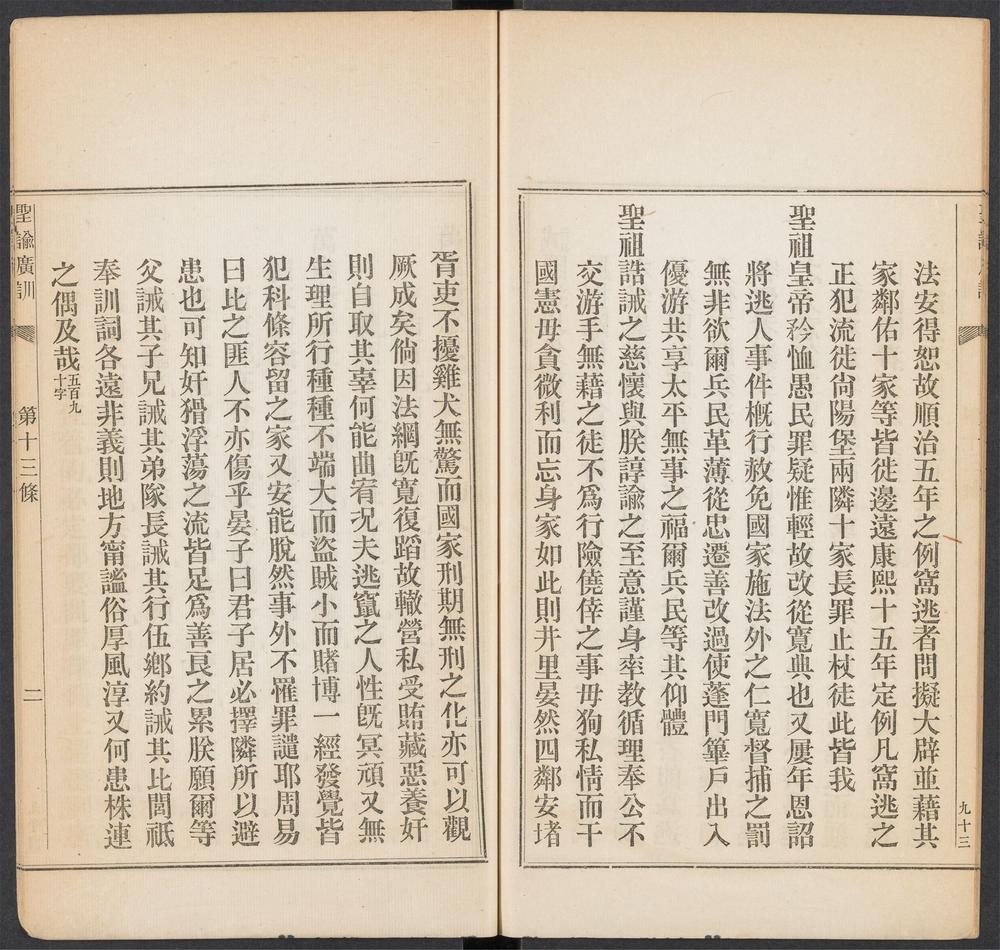 九十三
法安得恕故順治五年之例窩逃者問擬大辟並藉其
家鄰佑十家等皆徙邊遠康熙十五年定例凡窩逃之
正犯流徙尙陽堡兩隣十家長罪止杖徒此皆我
聖祖皇帝矜恤愚民罪疑惟輕故改從寬典也又屢年恩詔
將逃人事件槪行赦免國家施法外之仁寬督捕之罰
無非欲爾兵民革薄從忠遷善改過使蓬門篳戶出入
優游共享太平無事之福爾兵民等其仰體
聖祖誥誡之慈懷與朕諄諭之至意謹身率教循理奉公不
交游手無藉之徒不爲行險僥倖之事毋狥私情而干
國憲毋貪微利而忘身家如此則井里晏然四鄰安堵
胥吏不擾雞犬無驚而國家刑期無刑之化亦可以觀
厥成矣倘因法綱旣寬復蹈故轍營私受賄藏惡養奸
則自取其辜何能曲宥況夫逃竄之人性旣冥頑又無
生理所行種種不端大而盜賊小而賭博一經發覺皆
犯科條容留之家又安能脫然事外不罹罪譴耶周易
曰比之匪人不亦傷乎晏子曰君子居必擇隣所以避
患也可知奸猾浮蕩之流皆足爲善良之累朕願爾等
父誡其子兄誡其弟隊長誡其行伍鄕約誡其比閭祗
奉訓詞各遠非義則地方甯謐俗厚風淳又何患株連
之偶及哉五百九十字
聖諭廣訓 第十三條 二